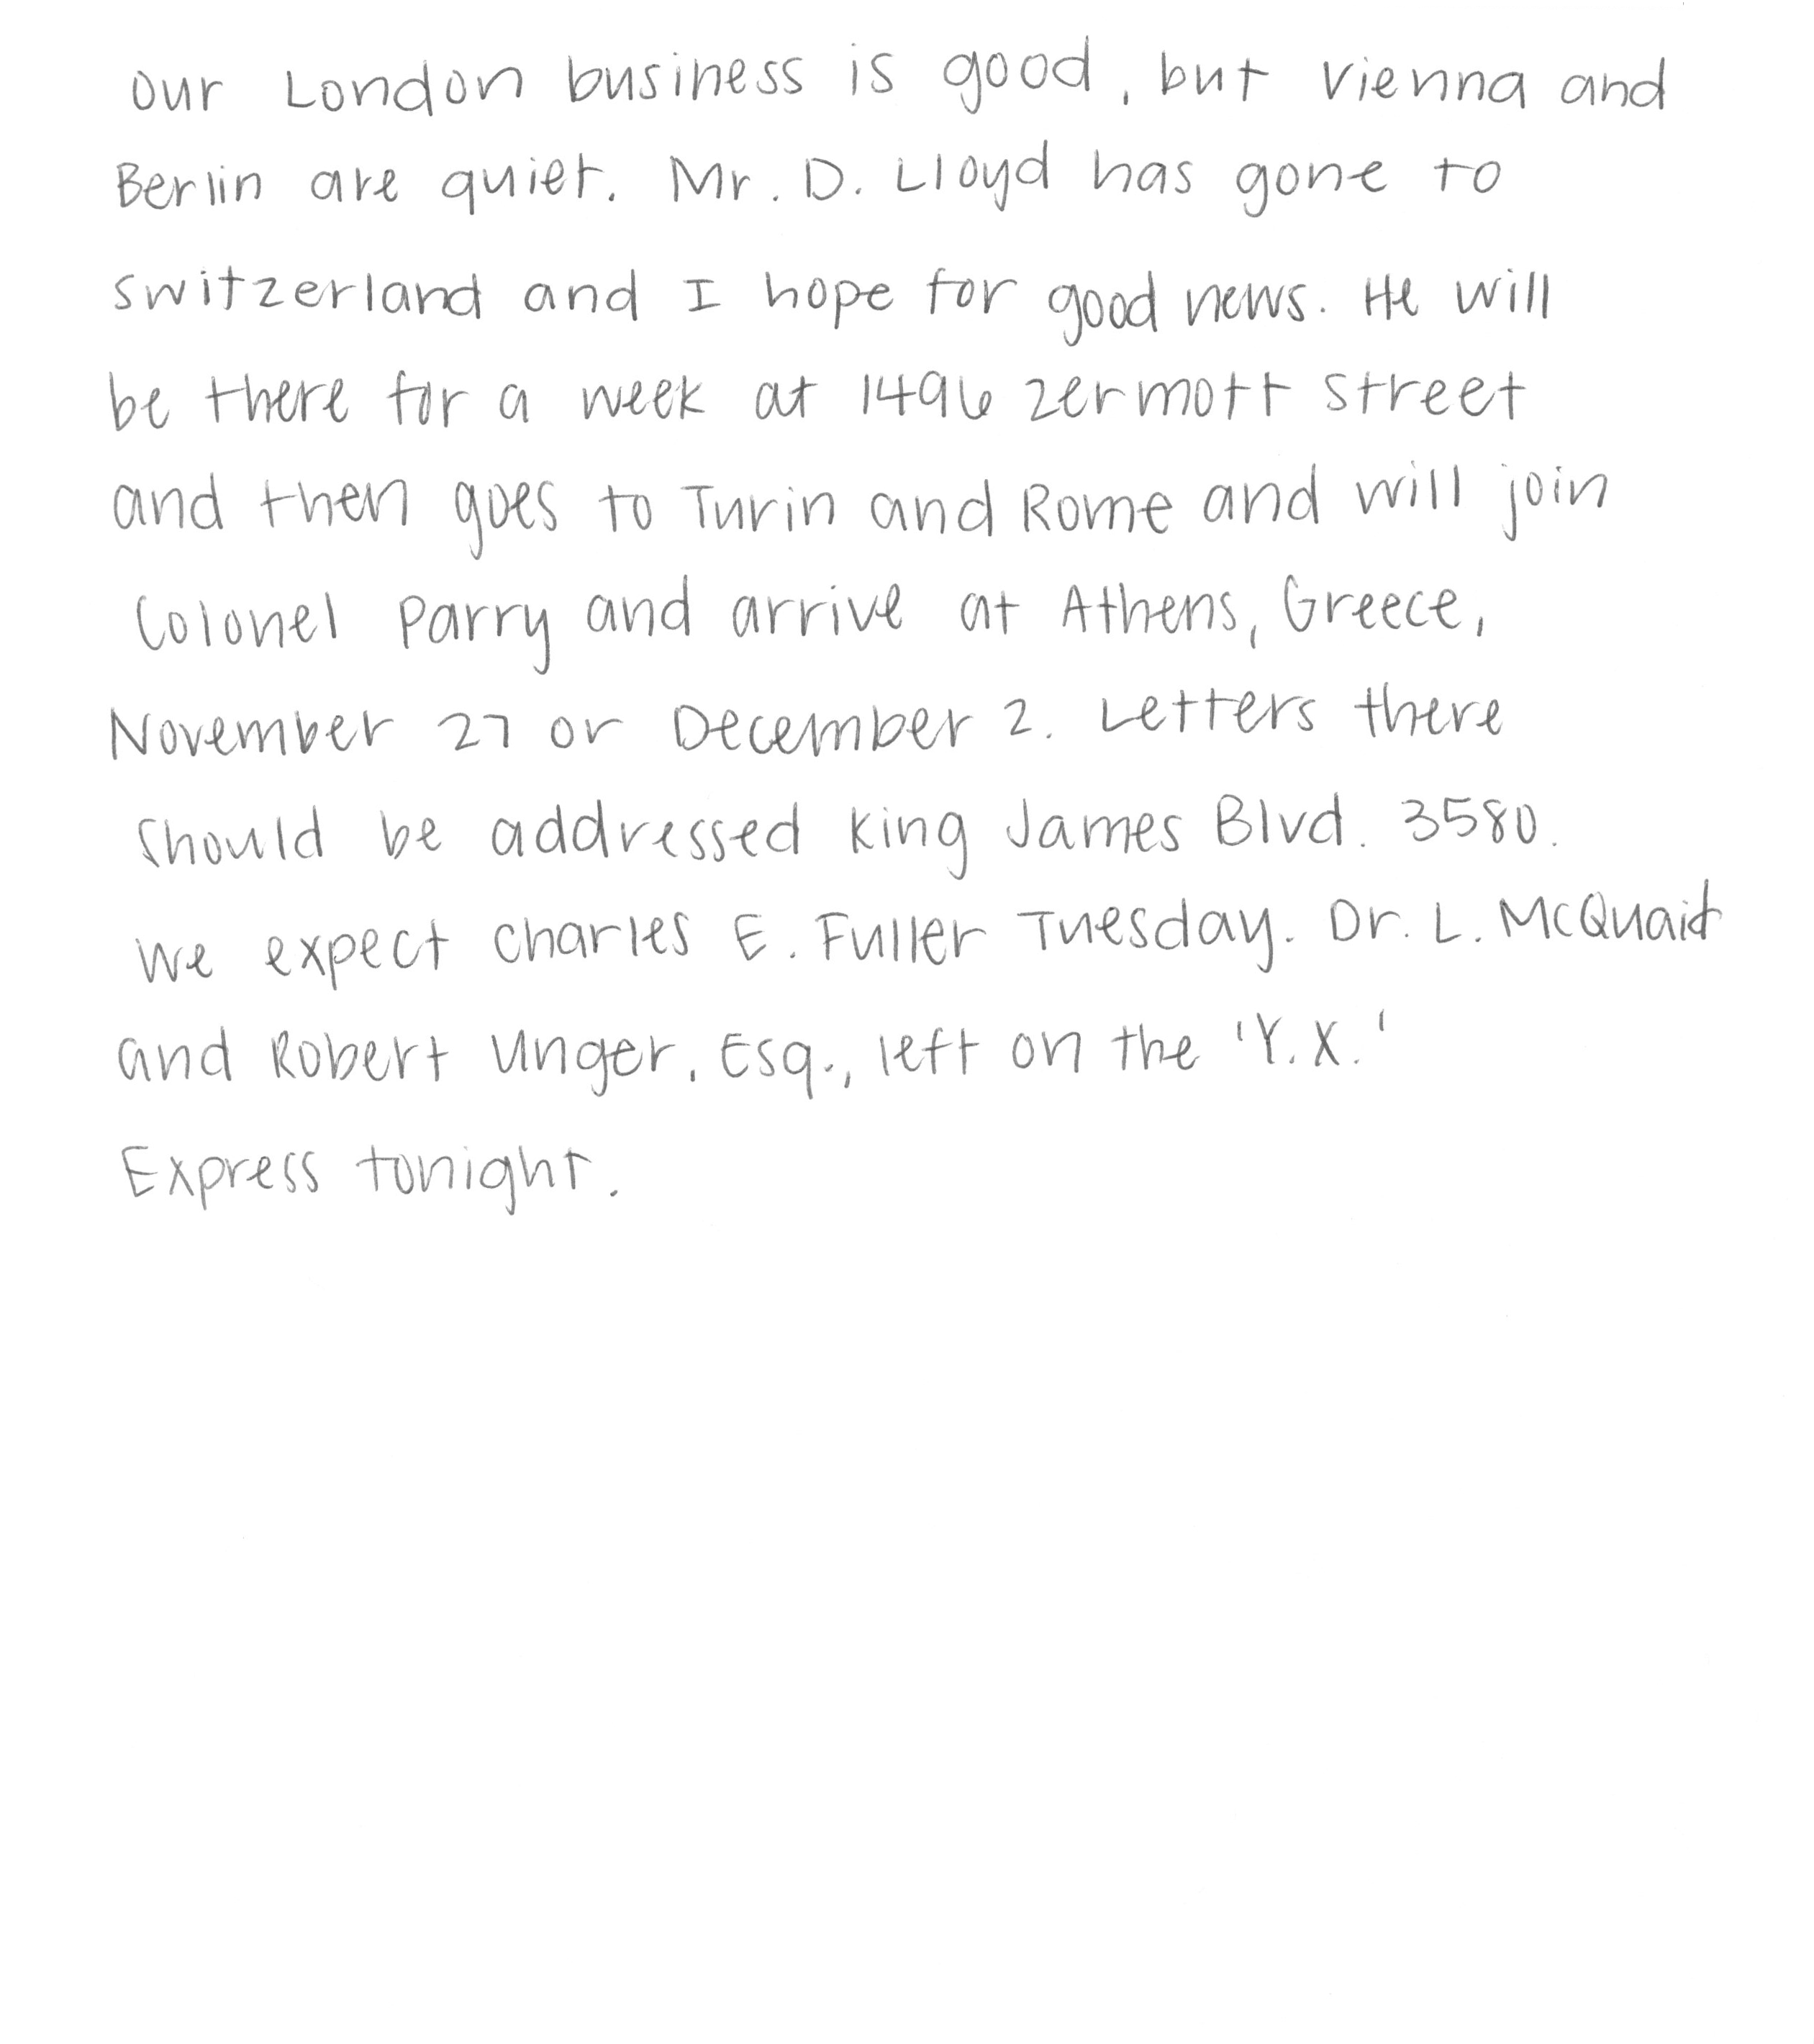 Our London business is good, but Vienna and
Berlin are quiet. Mr. D. Lloyd has gone to
Switzerland and I hope for good news. He will
be there for a week at 1496 Zermott Street
and then goes to Turin and Rome and will join
Colonel Parry and arrive at Athens, Greece,
November 27 or December 2. Letters there
should be addressed King James Blvd. 3580.
We expect Charles E. Fuller Tuesday. Dr. L. McQuaid
and Robert Unger, Esq., left on the 'Y.X.'
Express tonight.